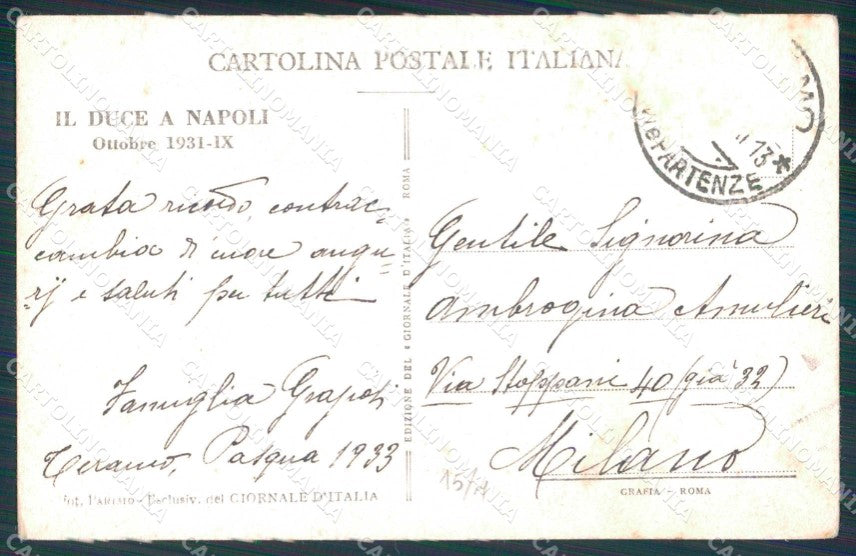 CARTOLINA POSTALE ITALIANA
IL DUCE A NAPOLI
Ottobre 1931-IX
Grata ricordo, contrac-
cambia di cuore augu
rij e saluti per tutti
Famiglia
Teramo, Pasqua 1933
Fot. PARISIO - Esclusiv. del GIORNALE D'ITALIA
EDIZIONE DEL «GIORNALE D'ITALIA» ROMA
13 *
PARTENZE
Gentile Signorina
Ambrogina
Via Stoppani 40 (già 32)
Milano
GRAFIA - ROMA
CARTOLINOMANIA